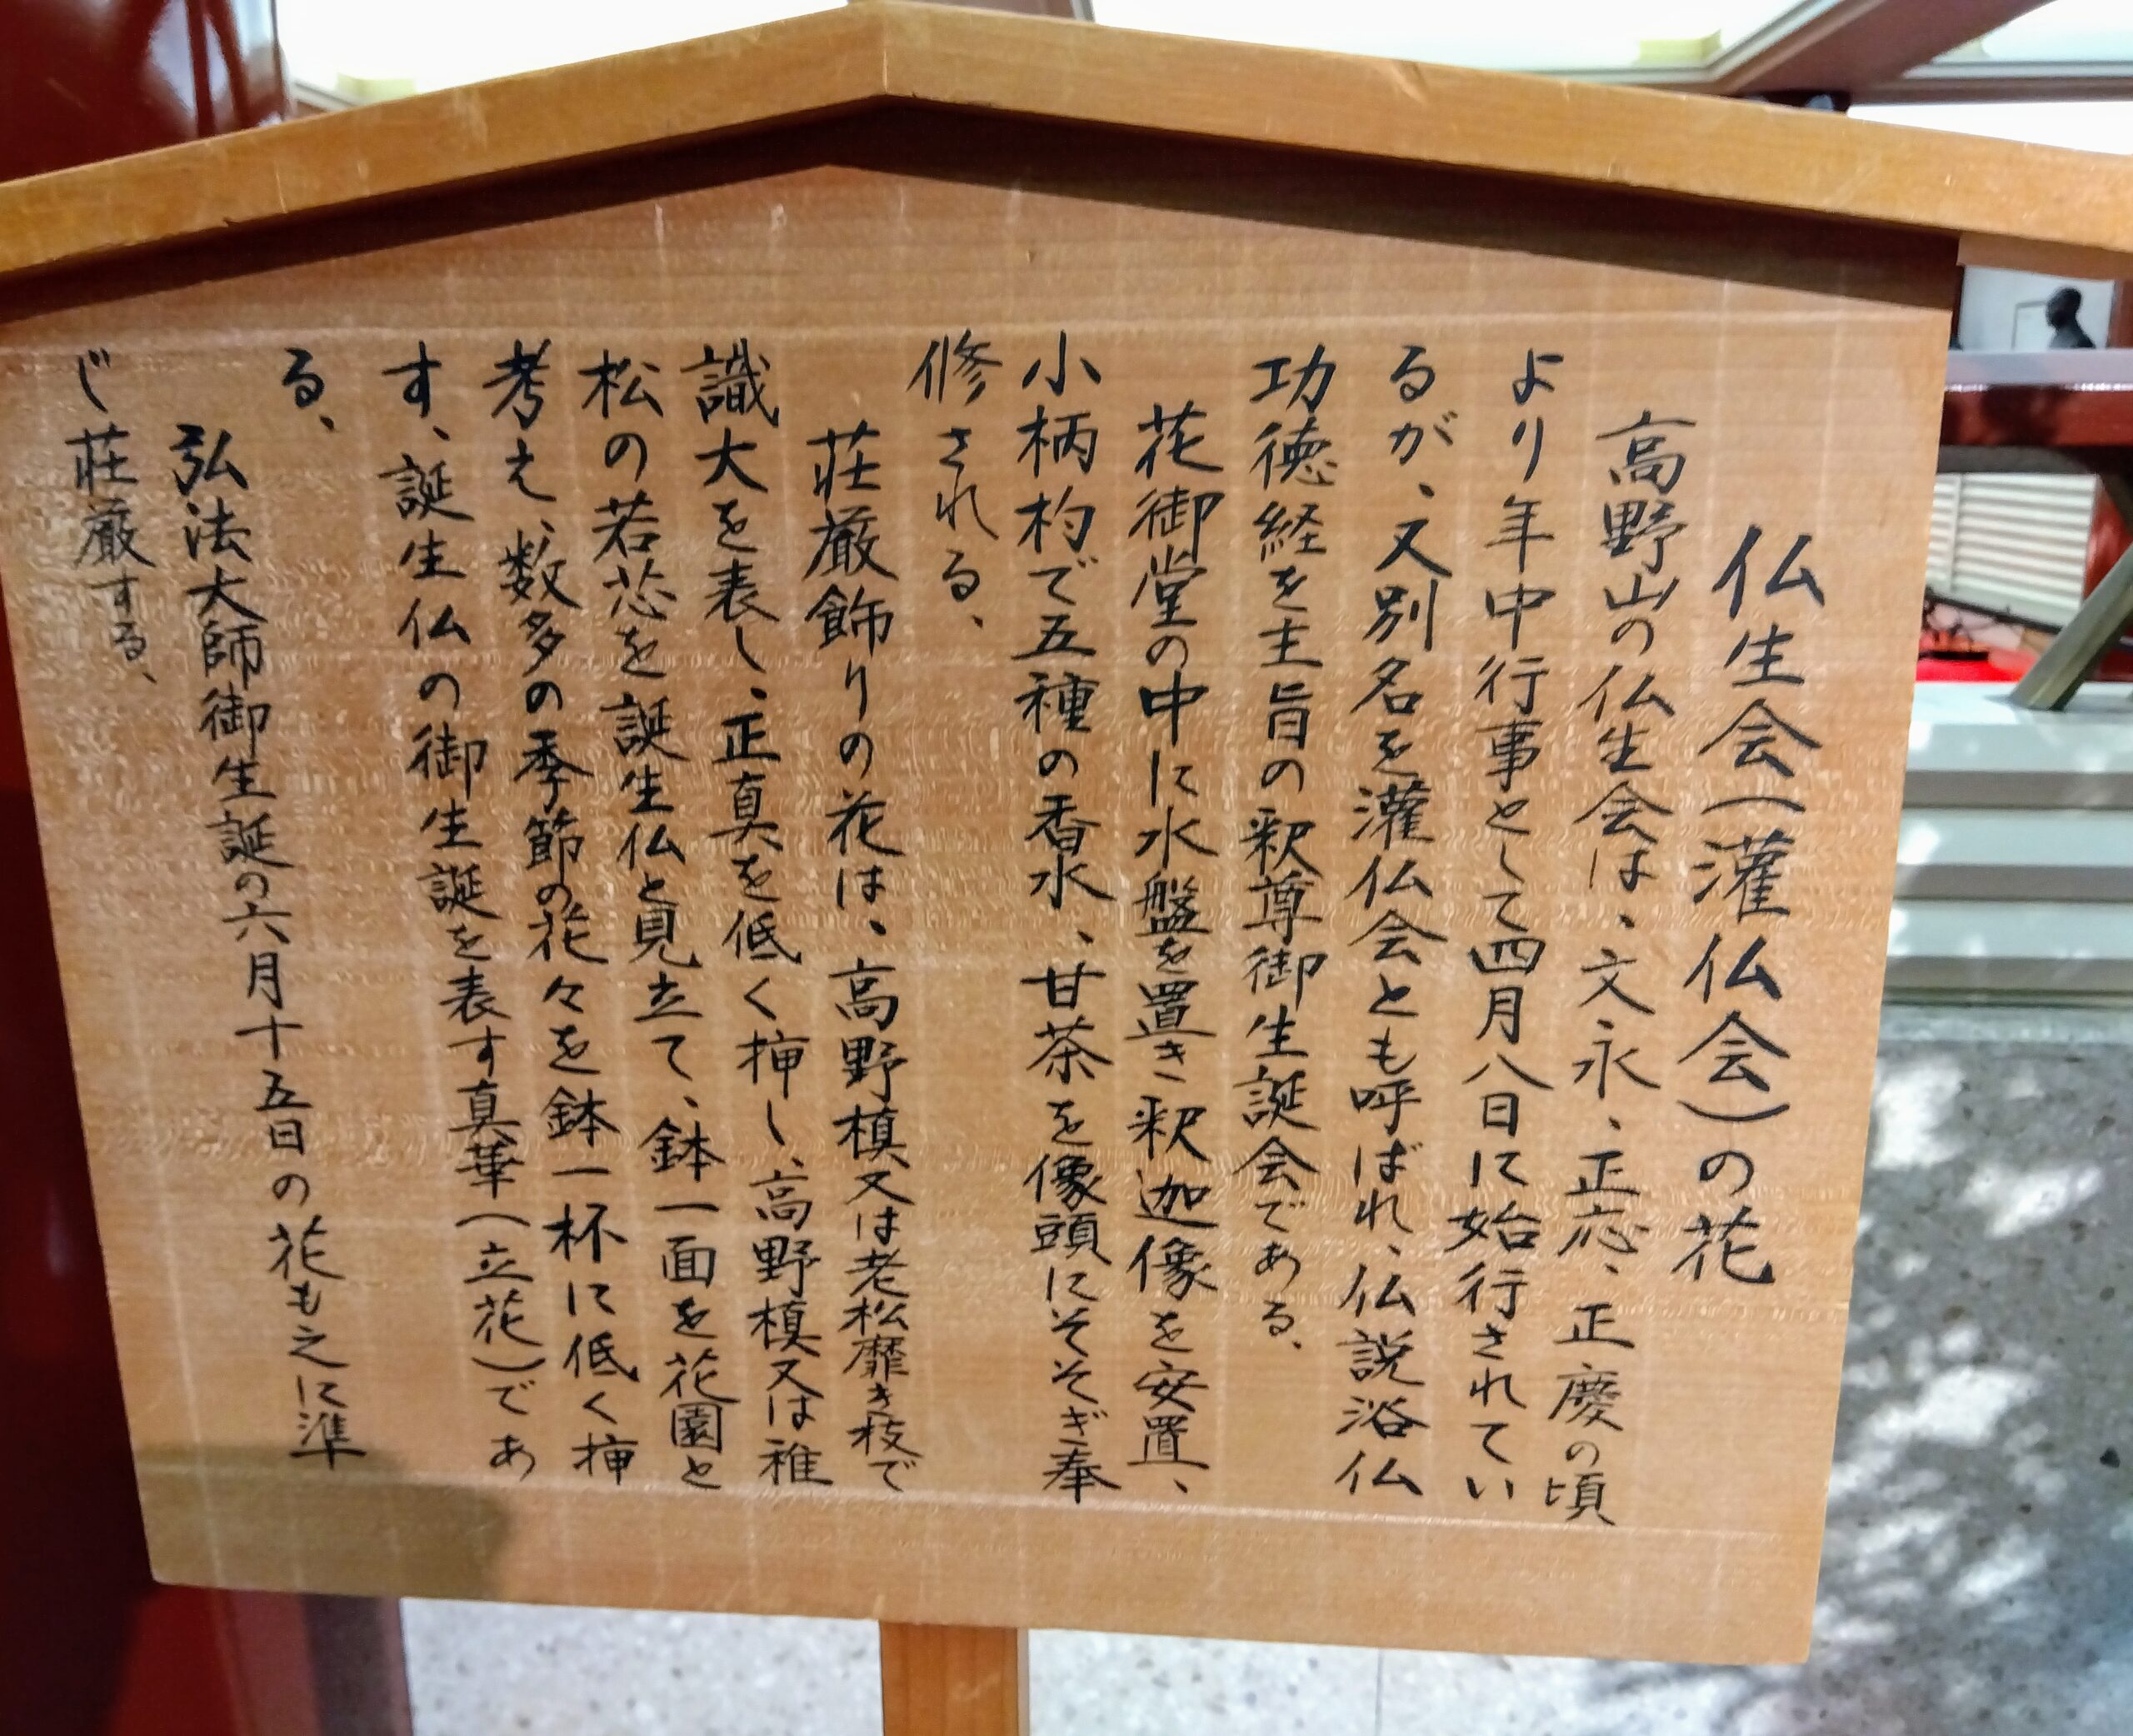 仏生会(灌仏会)の花
高野山の仏生会は、文永、正応、正慶の頃
より年中行事として四月八日に始行されてい
るが、又別名を灌仏会とも呼ばれ、仏説浴仏
功徳経を主旨の釈尊御生誕会である、
花御堂の中に水盤を置き釈迦像を安置、
小柄杓で五種の香水、甘茶を像頭にそそぎ奉
修される、
荘厳飾りの花は、高野槙又は老松靡き枝で
識大を表し、正真を低く挿し、高野槙又は稚
松の若芯を誕生仏と見立て、鉢一面を花園と
考え、数多の季節の花々を鉢一杯に低く挿
す、誕生仏の御生誕を表す真華(立花)であ
る、
弘法大師御生誕の六月十五日の花も之に準
じ荘厳する、